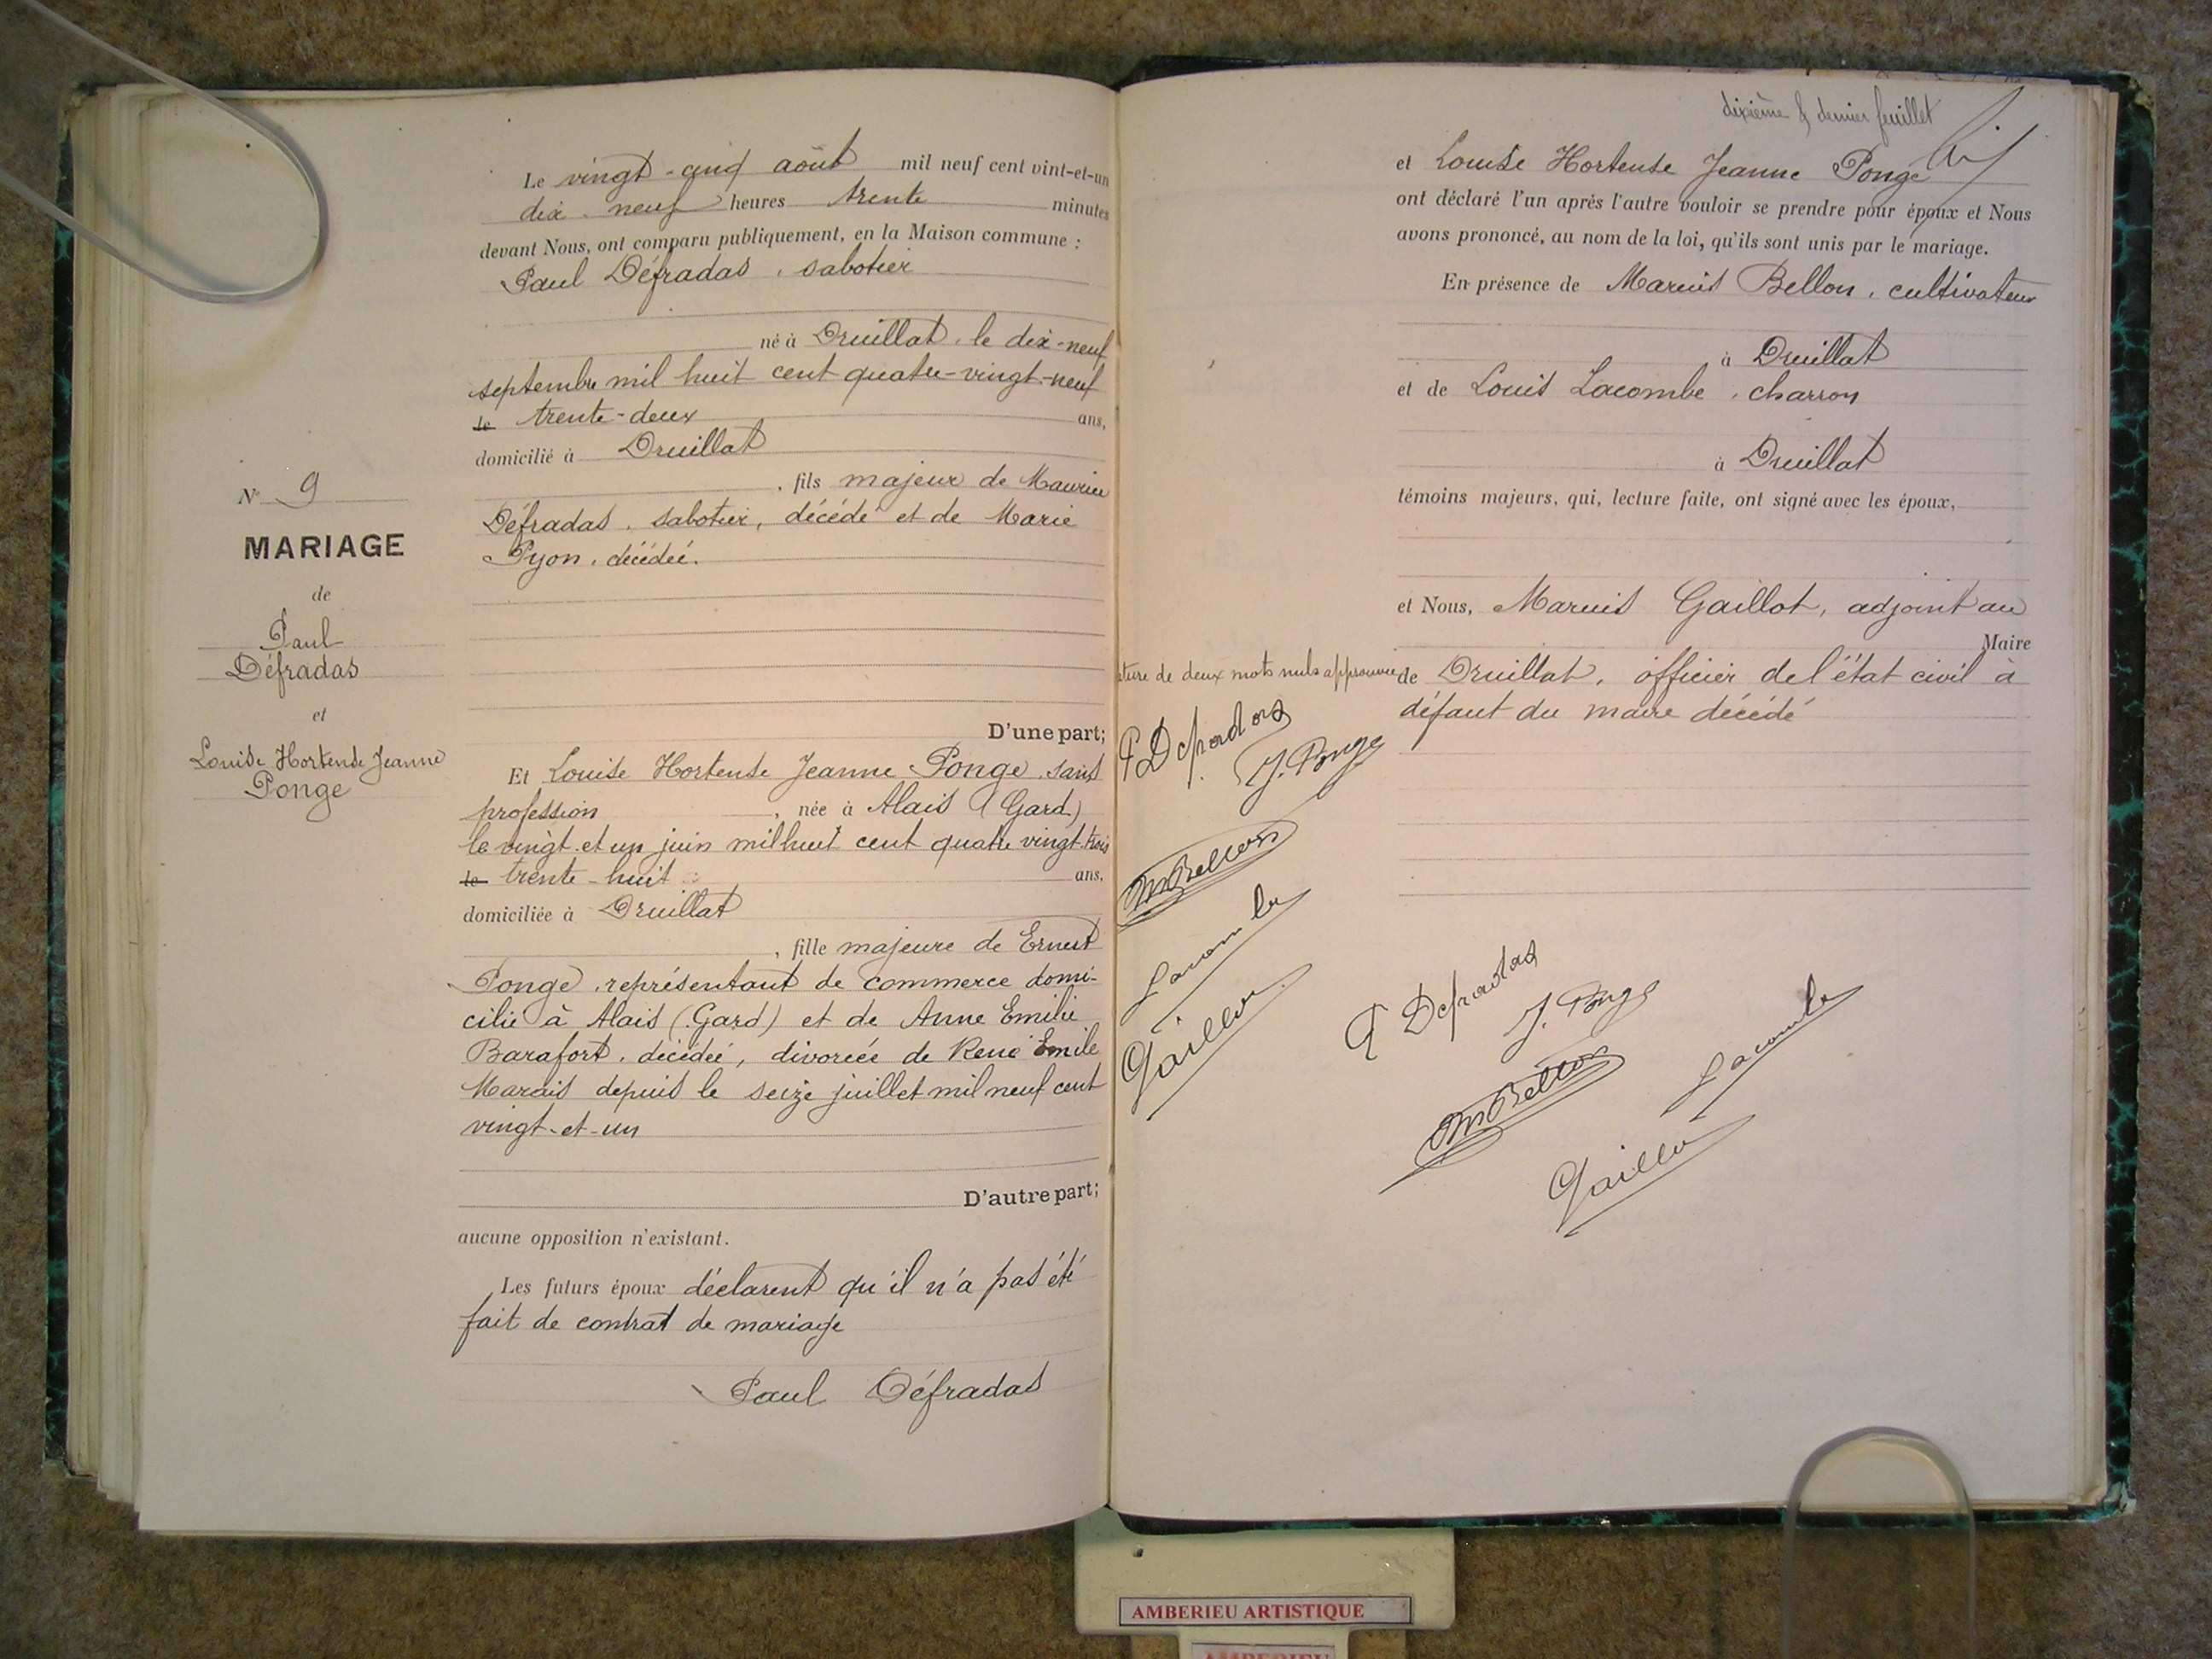 N° 9
MARIAGE
de
Paul
Défradas
et
Louise Hortense Jeanne
Ponge
Le vingt-cinq août mil neuf cent vint-et-un
dix-neuf heures trente minutes
devant Nous, ont comparu publiquement, en la Maison commune :
Paul Défradas, sabotier
né à Druillat, le dix-neuf
septembre mil huit cent quatre-vingt-neuf
le trente-deux ans,
domicilié à Druillat
, fils majeur de Maurice
Défradas, sabotier, décédé et de Marie
Pyon, décédée.
D'une part;
Et Louise Hortense Jeanne Ponge, sans
profession, née à Alais (Gard)
le vingt et un juin mil huit cent quatre vingt-trois
le trente-huit ans,
domiciliée à Druillat
, fille majeure de Ernest
Ponge, représentant de commerce domi-
cilié à Alais (Gard) et de Anne Emilie
Barafort, décédée, divorcée de René Emile
Marais depuis le seize juillet mil neuf cent
vingt-et-un
D'autre part;
aucune opposition n'existant.
Les futurs époux déclarent qu'il n'a pas été
fait de contrat de mariage
Paul Défradas
dixième & dernier feuillet
et Louise Hortense Jeanne Ponge
ont déclaré l'un après l'autre vouloir se prendre pour époux et Nous
avons prononcé, au nom de la loi, qu'ils sont unis par le mariage.
En présence de Marius Bellon, cultivateur
à Druillat
et de Louis Lacombe, charron
à Druillat
témoins majeurs, qui, lecture faite, ont signé avec les époux,
et Nous, Marius Gaillot, adjoint au
Maire
de Druillat, officier de l'état civil à
défaut du maire décédé
de deux mots nuls approuvée
P Defradas
J. Ponge
M Bellon
Lacombe
Gaillot
P Defradas
J. Ponge
M Bellon
Lacombe
Gaillot
AMBERIEU ARTISTIQUE
AMBERIEU